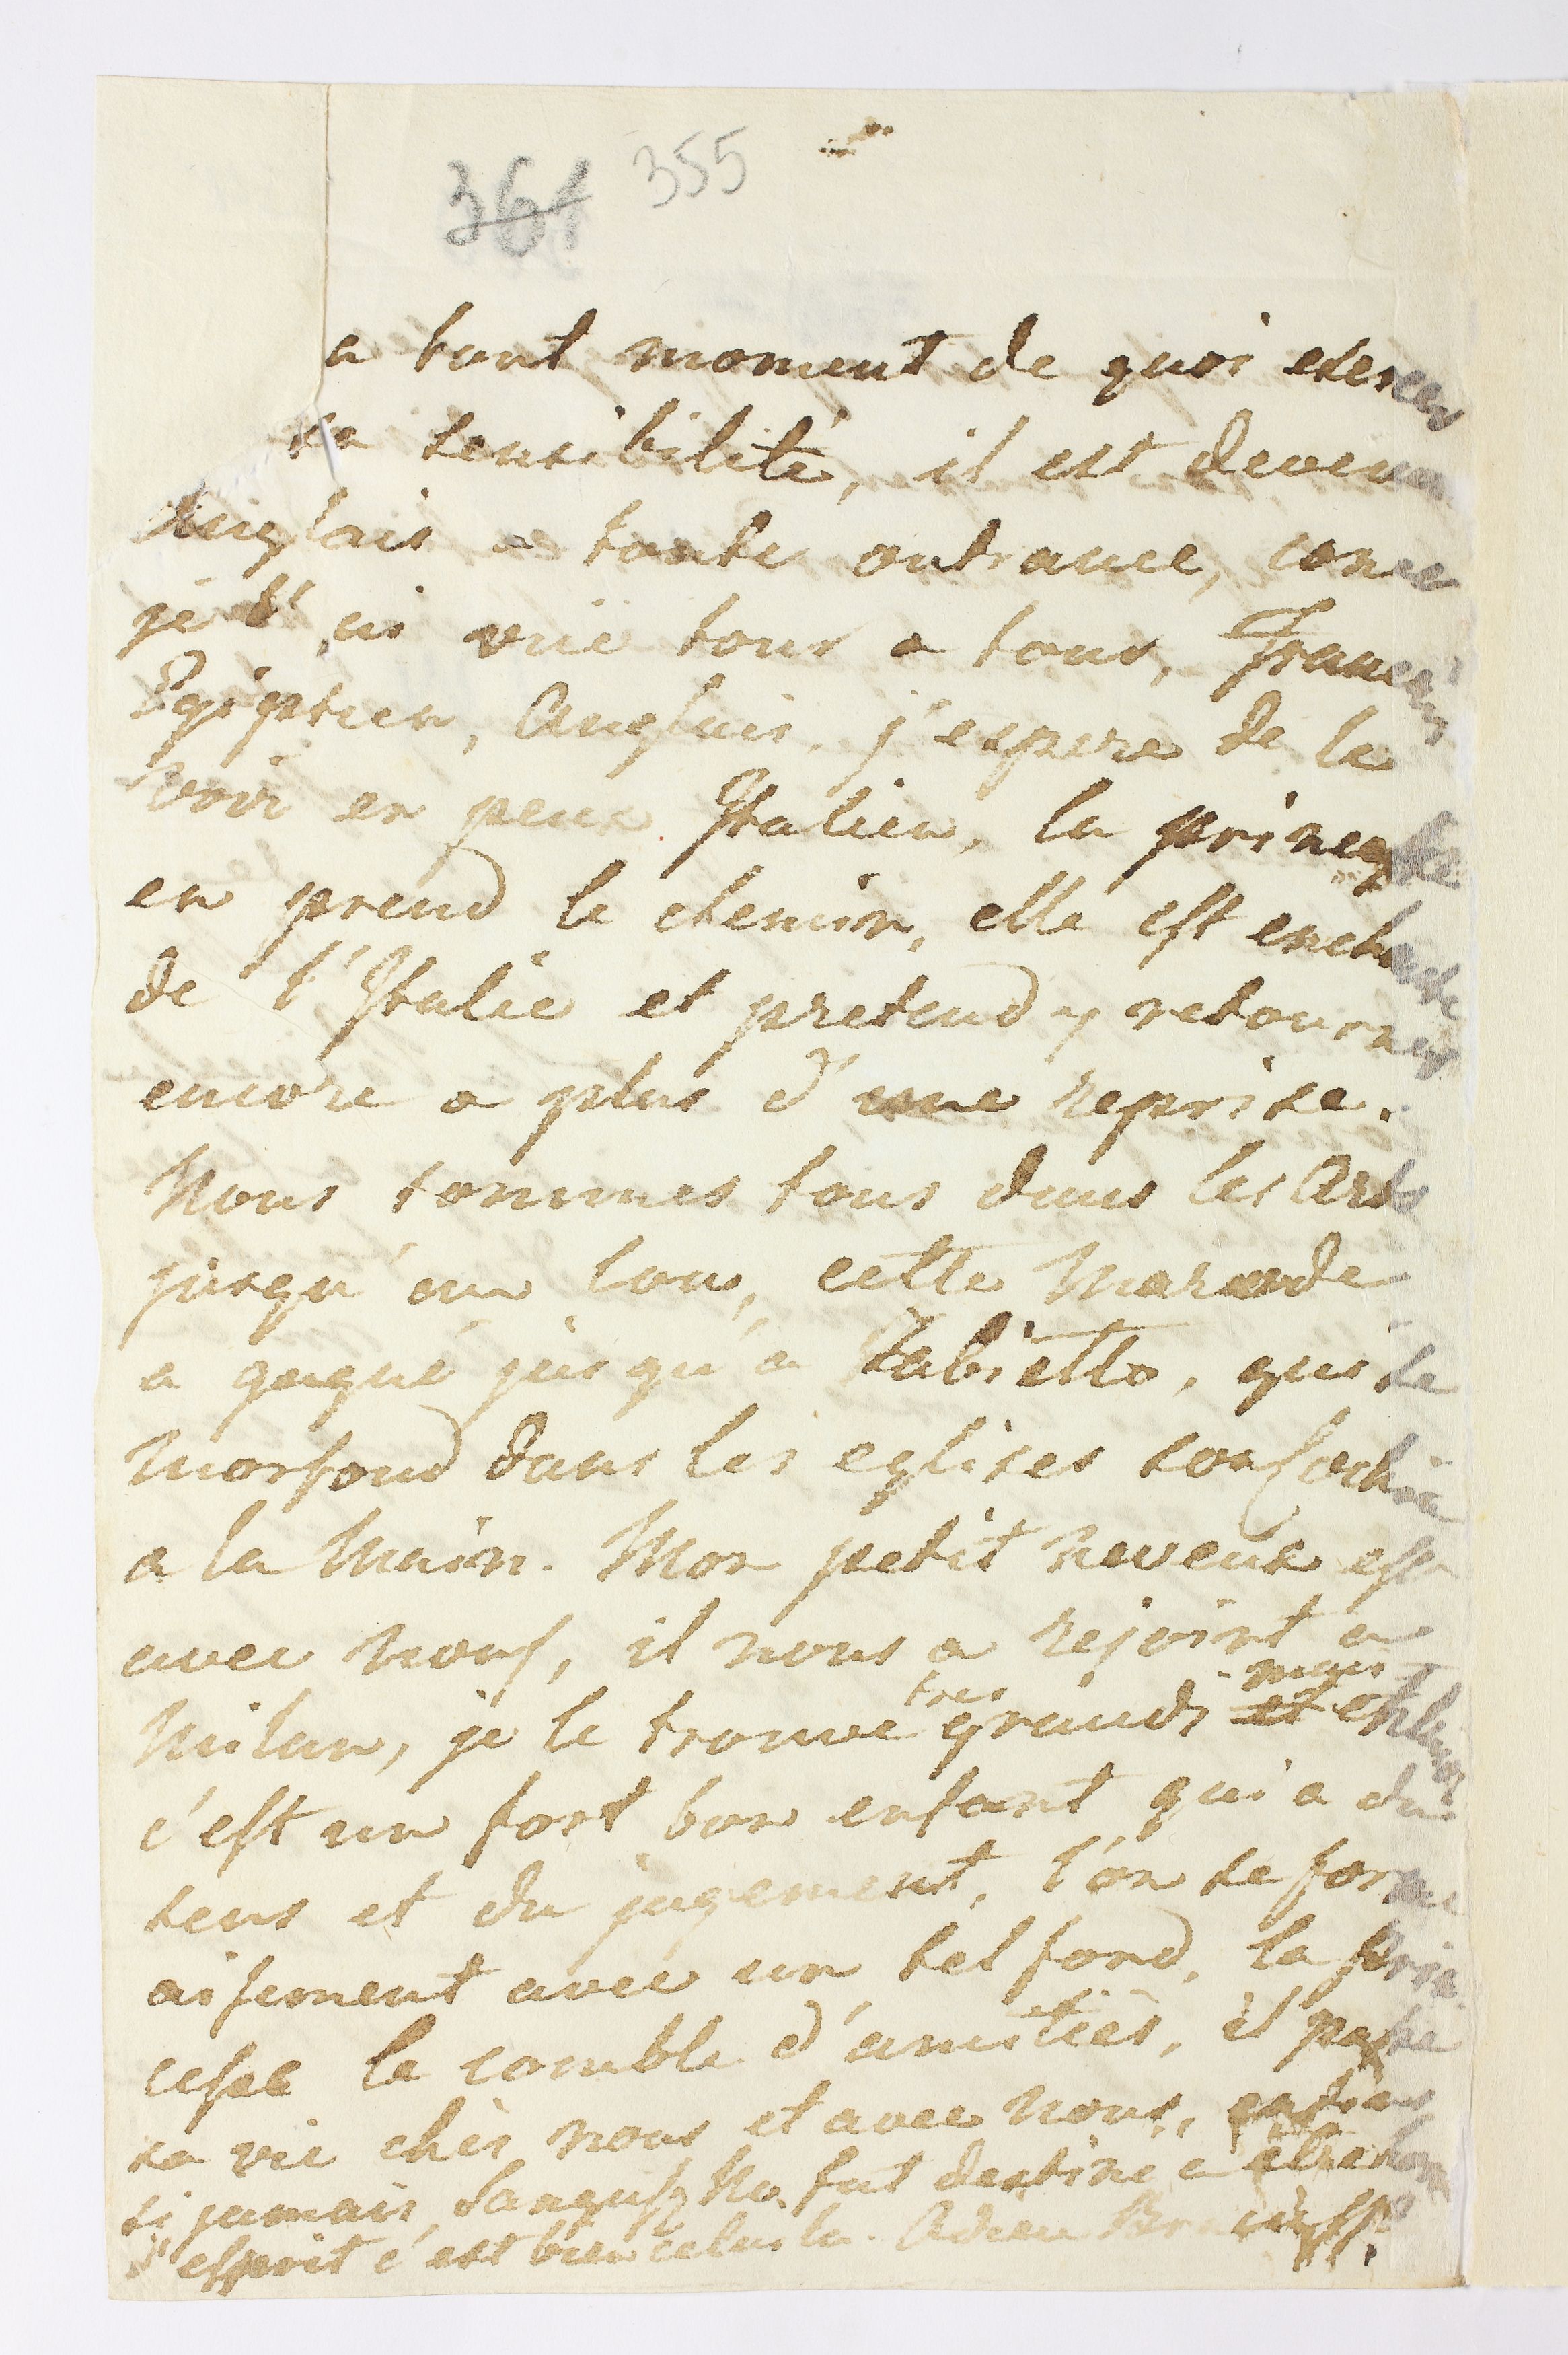 361 355
a tout moment de quoi exercer
sa sensibilité, il est devenu
Anglais a toute outrance, comme
je l'ai vüe tour a tour, Francais
Egiptien, Anglais, j'espere de le
voir en peux Italien, la princesse
en prend le chemin, elle est enchantée
de l'Italie et pretend y retourner
encore a plus d'une reprise.
Nous sommes tous dans les Arts
jusqu'au cou, cette
a gagné jusqu'a Zabiello, qui se
morfond dans les eglises son
a la main. Mon petit neveux est
avec nous, il nous a rejoint a
Milan, je le trouve tres grandi mais et
c'est un fort bon enfant qui a du
sens et du jugement, l'on se forme
aisement avec un tel fond, la prin
cesse le comble d'amitiés, il passe
sa vie chés nous et avec nous,
si jamais Sanguszko fut destiné a etre
d'esprit c'est bien celui la. Adieu